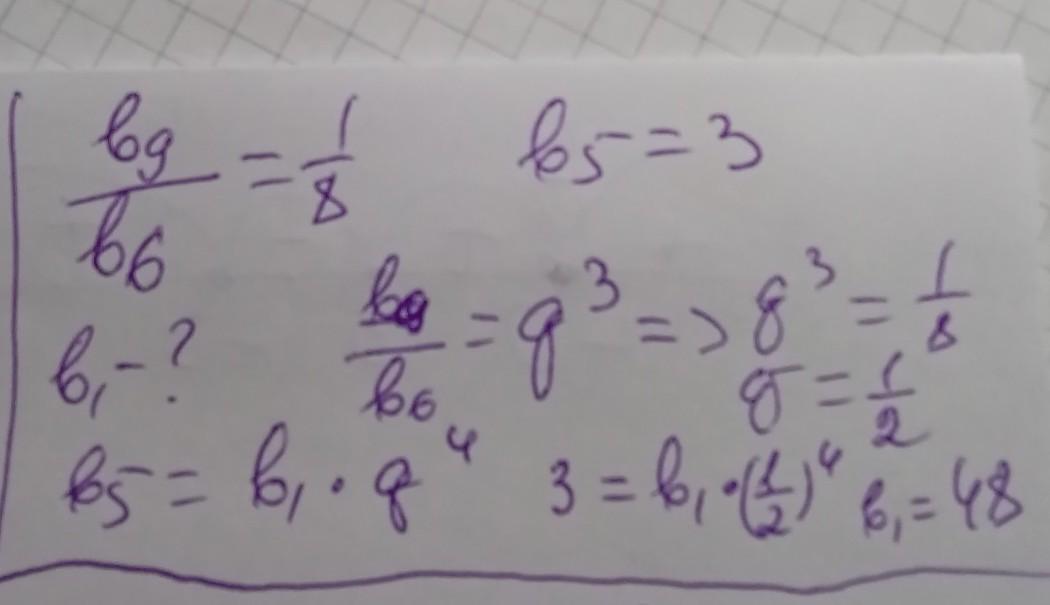 b₉/b₆ = 1/8 b₅ = 3
b₁ - ? b₉/b₆ = q³ => q³ = 1/8
q = 1/2
b₅ = b₁ · q⁴ 3 = b₁ · (1/2)⁴ b₁ = 48